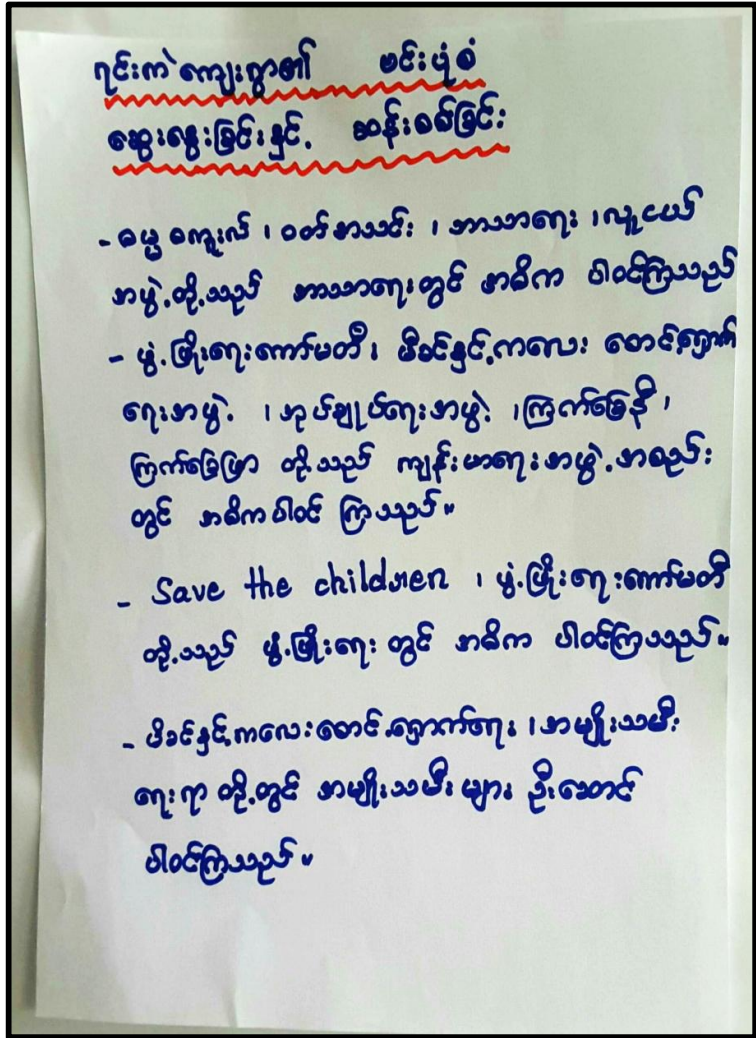 ရင်းကဲကျေးရွာ၏ ဗင်းပုံစံ
ဆွေးနွေးခြင်းနှင့် ဆန်းစစ်ခြင်း
- ဓမ္မစကူးလ် ၊ ဝတ်အသင်း ၊ ဘာသာရေး ၊လူငယ်
အဖွဲ့တို့သည် ဘာသာရေးတွင် အဓိက ပါဝင်ကြသည်
- ဖွံ့ဖြိုးရေးကော်မတီ၊ မိခင်နှင့်ကလေး စောင့်ရှောက်
ရေးအဖွဲ့ ၊အုပ်ချုပ်ရေးအဖွဲ့ ၊ကြက်ခြေနီ ၊
ကြက်ခြေဖြာ တို့သည် ကျန်းမာရေးအဖွဲ့အစည်း
တွင် အဓိကပါဝင် ကြသည်။
- Save the children ၊ ဖွံ့ဖြိုးရေးကော်မတီ
တို့သည် ဖွံ့ဖြိုးရေး တွင် အဓိက ပါဝင်ကြသည်။
- မိခင်နှင့်ကလေးစောင့်ရှောက်ရေး ၊အမျိုးသမီး
ရေးရာ တို့တွင် အမျိုးသမီးများ ဦးဆောင်
ပါဝင်ကြသည်။